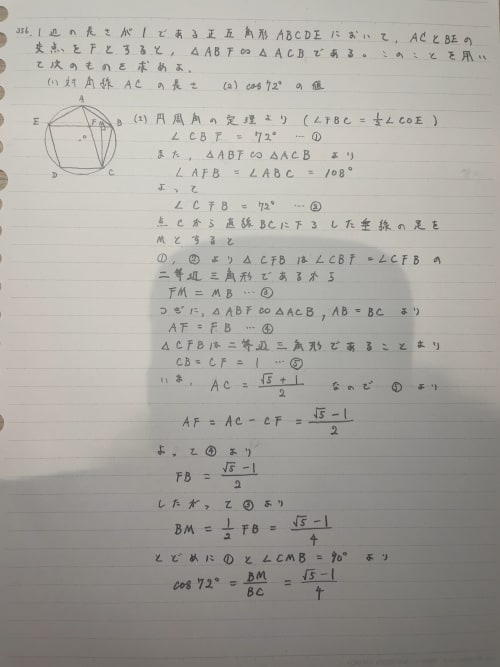 356. 1辺の長さが1である正五角形ABCDEにおいて, ACとBEの
交点をFとすると, △ABF∽△ACBである。このことを用い
て次のものを求めよ。
(1) 対角線ACの長さ (2) cos72°の値
A
E
F
M
B
O
D
C
(2) 円周角の定理より (∠FBC = 1/2∠COE)
∠CBF = 72° … ①
また, △ABF∽△ACB より
∠AFB = ∠ABC = 108°
よって
∠CFB = 72° … ②
点Cから直線BCに下ろした垂線の足を
Mとすると
①, ②より△CFBは∠CBF = ∠CFBの
二等辺三角形であるから
FM = MB … ③
つぎに, △ABF∽△ACB, AB = BC より
AF = FB … ④
△CFBは二等辺三角形であることより
CB = CF = 1 … ⑤
いま, AC = (√5 + 1)/2 なので ⑤より
AF = AC − CF = (√5 − 1)/2
よって④より
FB = (√5 − 1)/2
したがって③より
BM = 1/2 FB = (√5 − 1)/4
とどめに①と∠CMB = 90° より
cos72° = BM/BC = (√5 − 1)/4